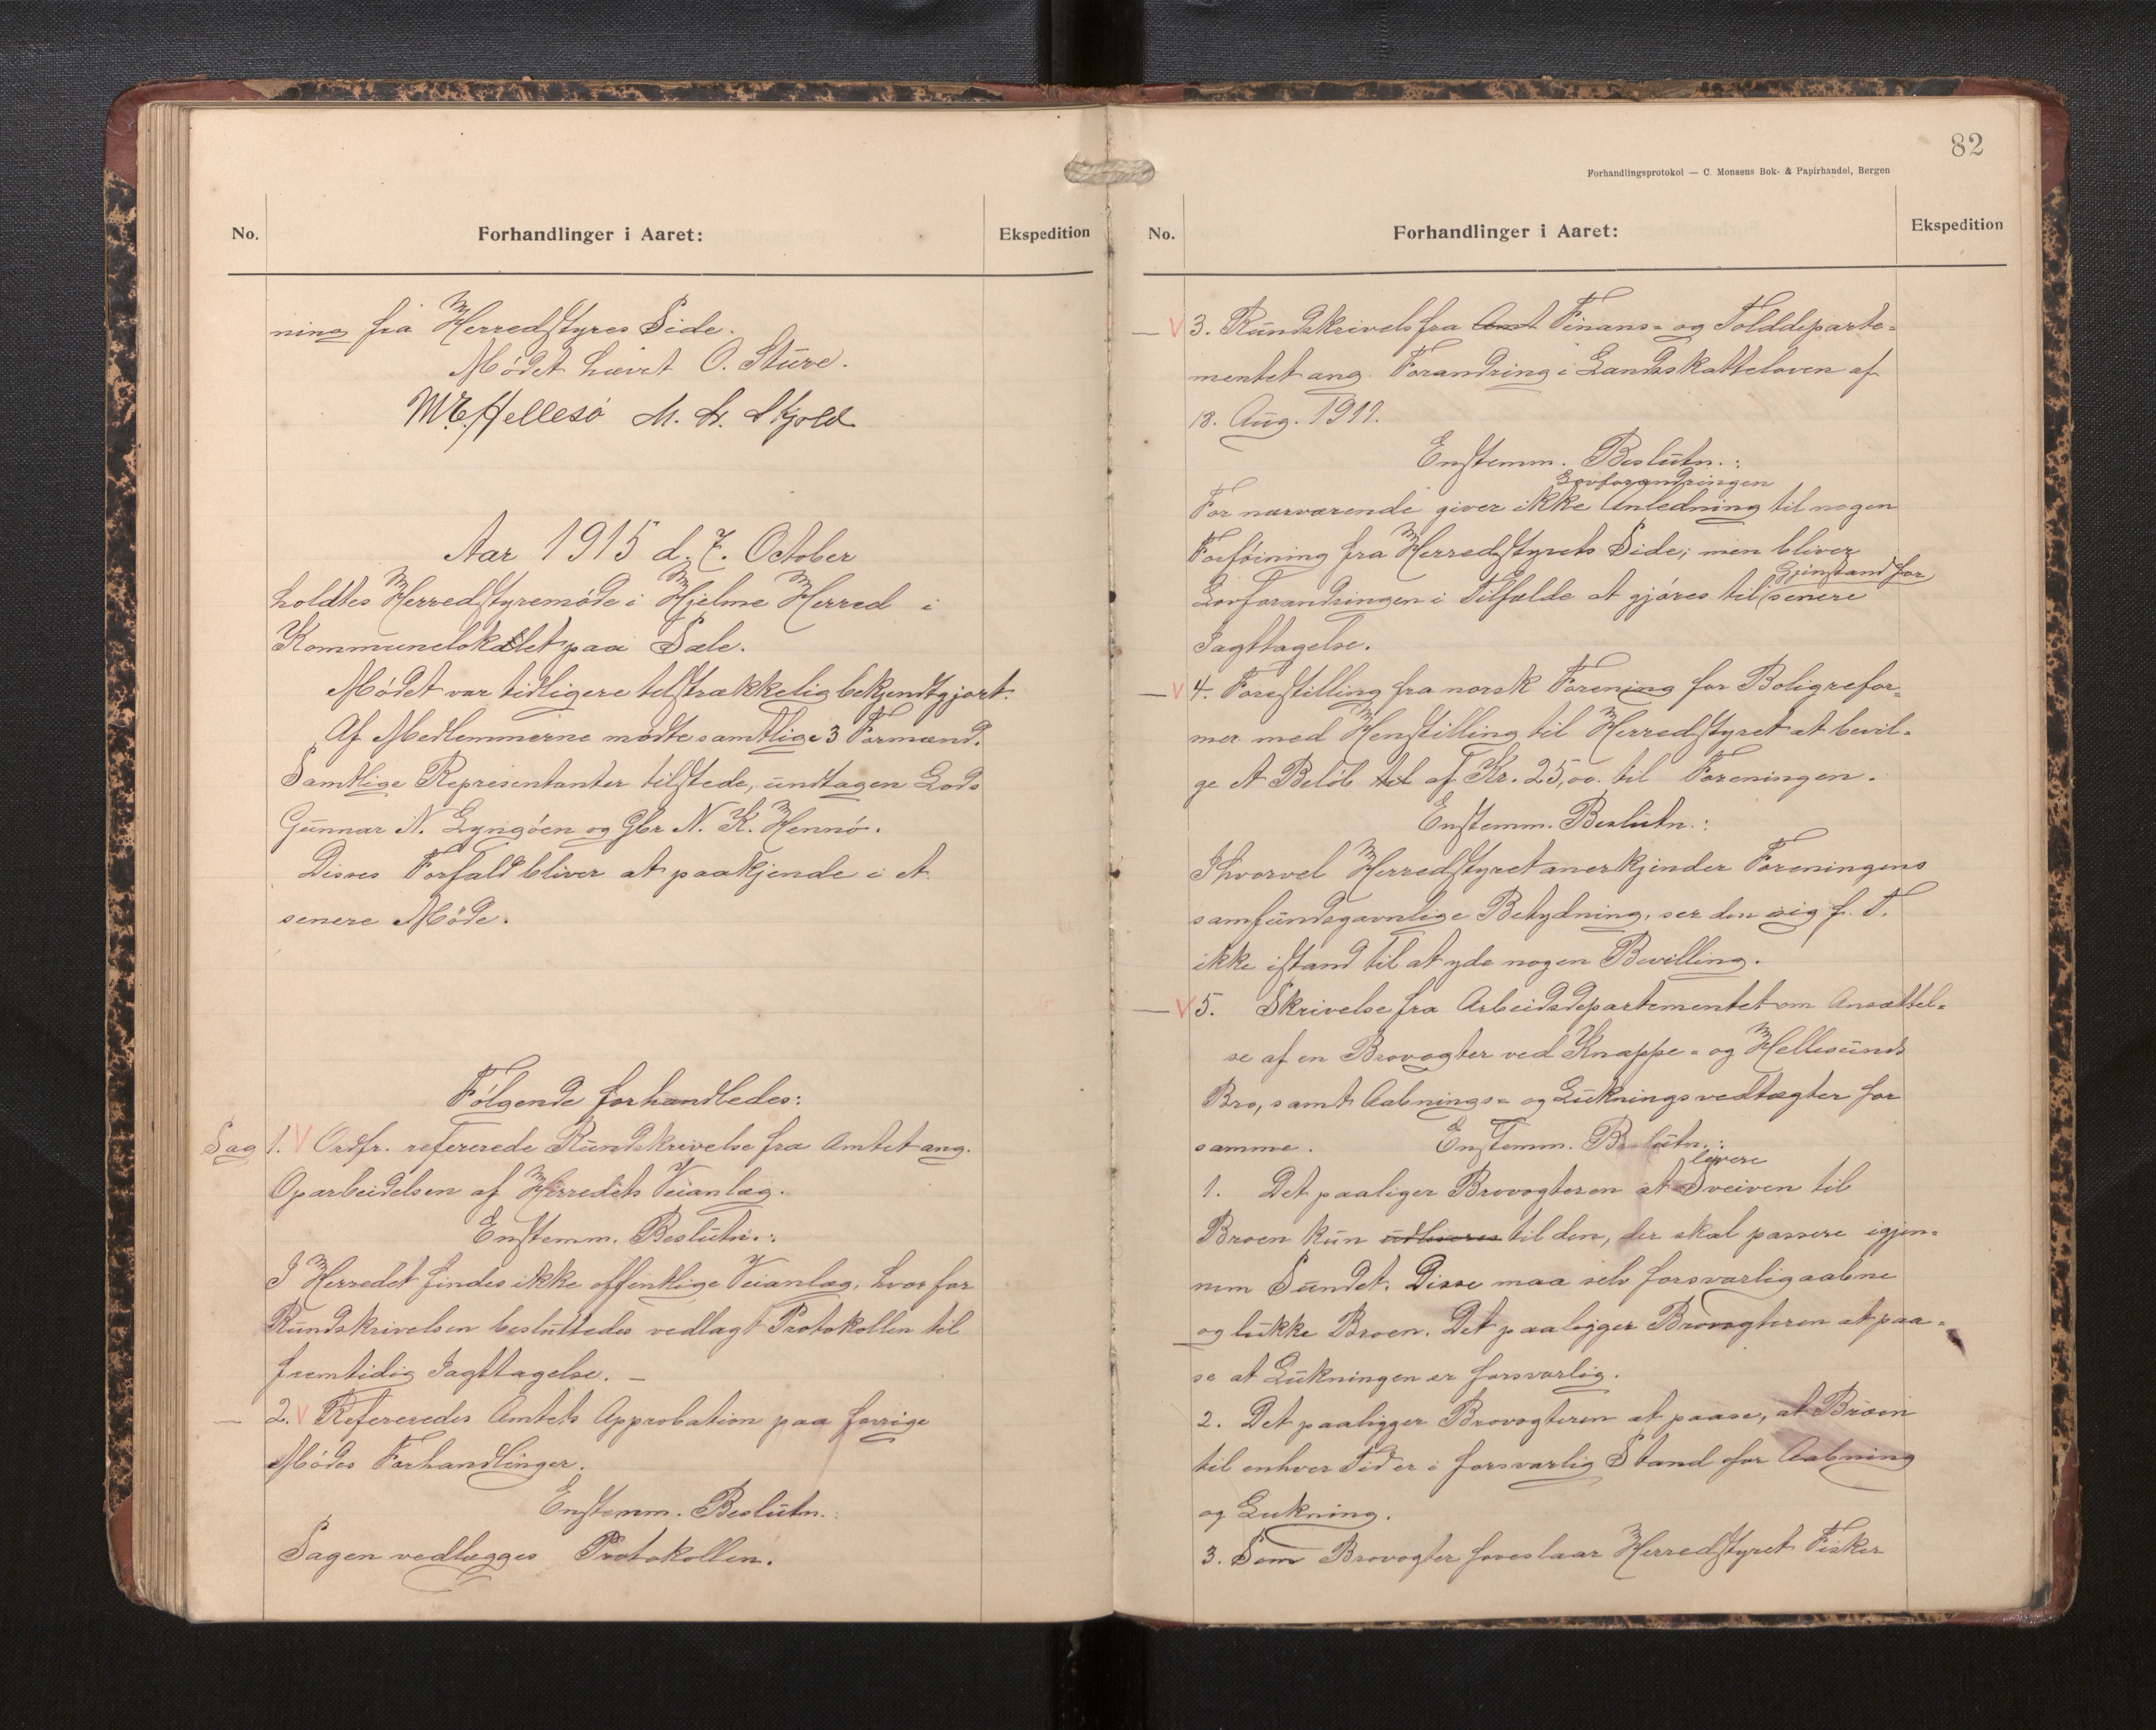 No.
Forhandlinger i Aaret:
Ekspedition
ning fra Herredstyres Side.
Mödet hævet O. Sture.
M. E. Hellesö M. A. Skjold
Aar 1915 d. 7. October
holdtes Herredstyremöde i Hjelme Herred i
Kommunelokalet paa Sæle.
Mödet var tidligere tilstrækkelig bekjendtgjort.
Af Medlemmerne mödte samtlige 3 Formænd.
Samtlige Representanter tilstede, undtagen Lods
Gunnar N. Lyngöen og Gbr N. K. Hennö.
Disses Forfald bliver at paakjende i et
senere Möde.
Fölgende forhandledes:
Sag 1. V Ordfr. refererede Rundskrivelse fra Amtet ang.
Oparbeidelsen af Herredets Veianlæg.
Enstemm. Beslutn.:
I Herredet findes ikke offentlige Veianlæg, hvorfor
Rundskrivelsen besluttedes vedlagt Protokollen til
fremtidig Iagttagelse. –
— 2. V Refereredes Amtets Approbation paa forrige
Mödes Forhandlinger.
Enstemm. Beslutn.:
Sagen vedlægges Protokollen.
82
Forhandlingsprotokol — C. Monsens Bok- & Papirhandel, Bergen
No.
Forhandlinger i Aaret:
Ekspedition
— V 3. Rundskrivels fra Amt Finans= og Tolddeparte=
mentet ang. Forandring i Landsskatteloven af
18. Aug. 1911.
Enstemm. Beslutn.:
Lovforandringen
For nærværende giver ikke Anledning til nogen
Forföining fra Herredstyrets Side; men bliver
Gjenstand for
Lovforandringen i Tilfælde at gjöres til senere
Iagttagelse.
— V 4. Forestilling fra norsk Forening for Boligrefor=
mer med Henstilling til Herredstyret at bevil=
ge et Belöb til af Kr. 25,00. til Foreningen.
Enstemm. Beslutn.:
Ihvorvel Herredstyret anerkjender Foreningens
samfundsgavnlige Betydning, ser den sig f. T.
ikke istand til at yde nogen Bevilling.
— V 5. Skrivelse fra Arbeidsdepartementet om Ansættel=
se af en Brovogter ved Knappe= og Hellesunds
Bro, samt Aabnings= og Lukningsvedtægter for
samme. Enstemm. Beslutn.:
levere
1. Det paaliger Brovogteren at Sveiven til
Broen kun udleveres til den, der skal passere igjen=
nem Sundet. Disse maa selv forsvarlig aabne
og lukke Broen. Det paaligger Brovogteren at paa=
se at Lukningen er forsvarlig.
2. Det paaligger Brovogteren at paase, at Broen
til enhver Tid er i forsvarlig Stand for Aabning
og Lukning.
3. Som Brovogter foreslaar Herredstyret Fisker